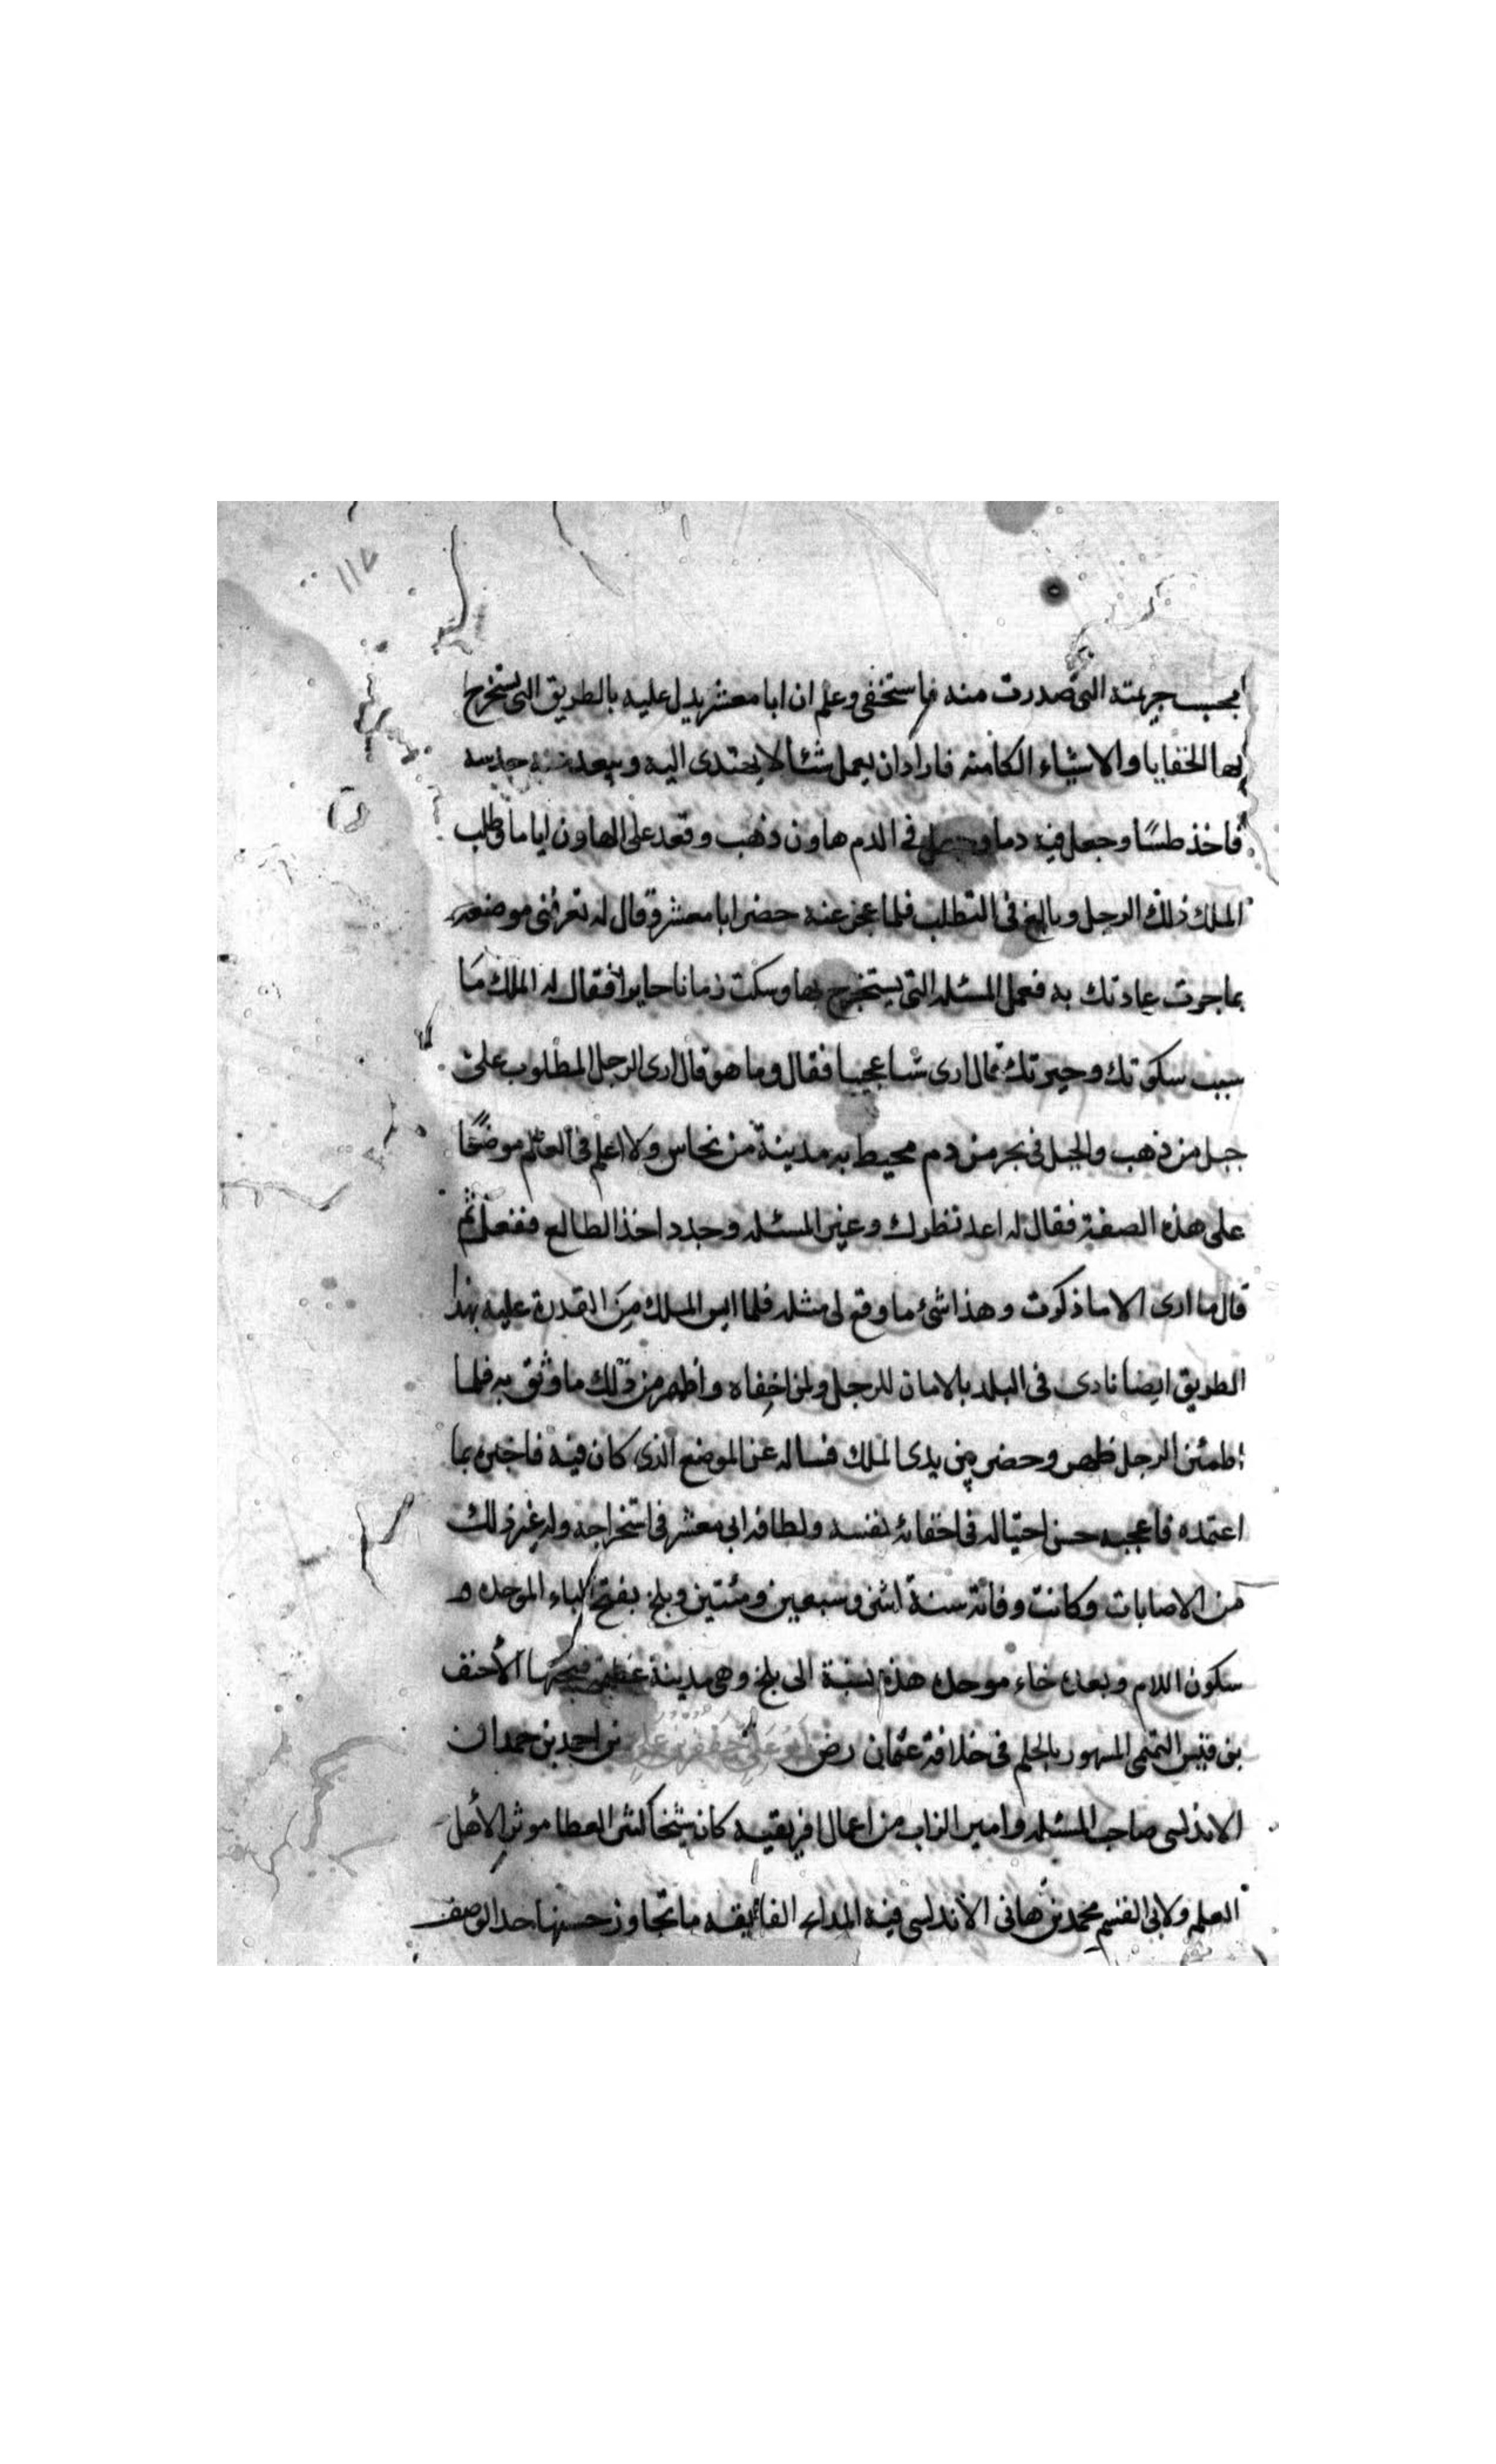 ١١٧
بجب جريمته التي صدرت منه فاستخفى وعلم ان ابا معشر يدل عليه بالطريق التي يستخرج
بها الخفايا والاشياء الكامنه فاراد ان يعمل شئا لا يهتدى اليه ويبعد عنه حدسه
فاخذ طستًا وجعل فيه دما وجعل في الدم هاون ذهب وقعد على الهاون اياما وطلب
الملك ذلك الرجل وبالغ في التطلب فلما عجز عنه حضر ابا معشر وقال له تعرفني موضعه
بما جرت عادتك به فعمل المسئله التي يستخرج بها وسكت زمانا حايرا فقال له الملك مَا
سبب سكوتك وحيرتك قال ارى شيا عجيبا فقال وما هو قال ارى الرجل المطلوب على
جبل من ذهب والجبل في بحر من دم محيط به مدينة من نحاس ولا اعلم في العالم موضعًا
على هذه الصفة فقال له اعد نظرك وغير المسئله وجدد اخذ الطالع ففعل ثم
قال ما ارى الا ما ذكرت وهذا شئ ما وقع لى مثله فلما ايس الملك مِنَ القدرة عليه بهذا
الطريق ايضا نادى في البلد بالامان للرجل ولمن اخفاه واظهر من ذلك ما وثق به فلما
اطمئن الرجل ظهر وحضر بين يدى الملك فساله عن الموضع الذى كان فيه فاخبره بما
اعتمده فاعجبه حسن احتياله في اخفائه نفسه ولطافه ابى معشر في استخراجه وله غير ذلك
من الاصابات وكانت وفاته سنة اثنى وسبعين ومئتين وبلخ بفتح الباء الموحده و
سكون اللام وبعده خاء موحده هذه نسبة الى بلخ وهى مدينة عظيمه فتحها الأحنف
بن قيس التميمى المشهور بالحلم في خلافة عثمان رضى ابو على جعفر بن على بن احمد بن حمدان
الاندلسى صاحب المسئله وامير الزاب من اعمال افريقيه كان شيخًا كثير العطا موثر الأهل
العلم ولابى القسم محمد بن هانى الاندلسى فيه المدايح الفائيقه ما تجاوز حسنها حد الوصف